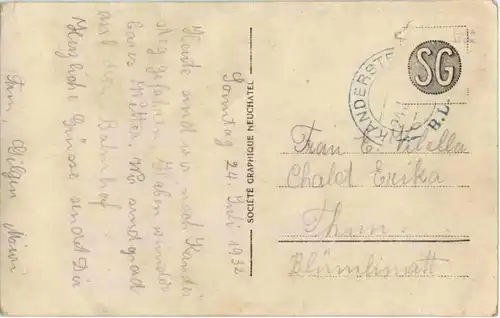 Sonntag 24. Juli 1932
Heute sind wir nach Kander
steg gefahren. Haben wunder
bares Wetter. Wir sind grad
auf dem Bahnhof.
Herzliche Grüsse sendet Dir
Fam.
SOCIÉTÉ GRAPHIQUE NEUCHATEL
KANDERSTEG
SG
Frau E.
Chalet Erika
Thun.
Blümlimatt